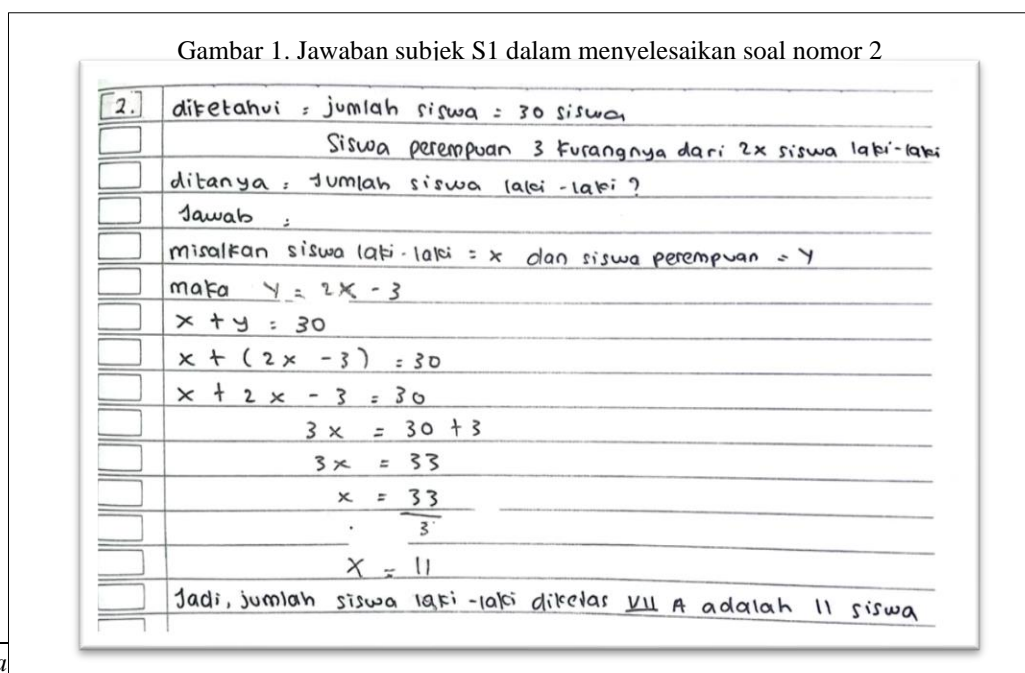 Gambar 1. Jawaban subjek S1 dalam menyelesaikan soal nomor 2
2. diketahui : jumlah siswa = 30 siswa
Siswa perempuan 3 kurangnya dari 2x siswa laki-laki
ditanya : Jumlah siswa laki-laki ?
Jawab :
misalkan siswa laki-laki = x dan siswa perempuan = y
maka y = 2x - 3
x + y = 30
x + (2x - 3) = 30
x + 2x - 3 = 30
3x = 30 + 3
3x = 33
x = 33
3
x = 11
Jadi, jumlah siswa laki-laki dikelas VII A adalah 11 siswa
a